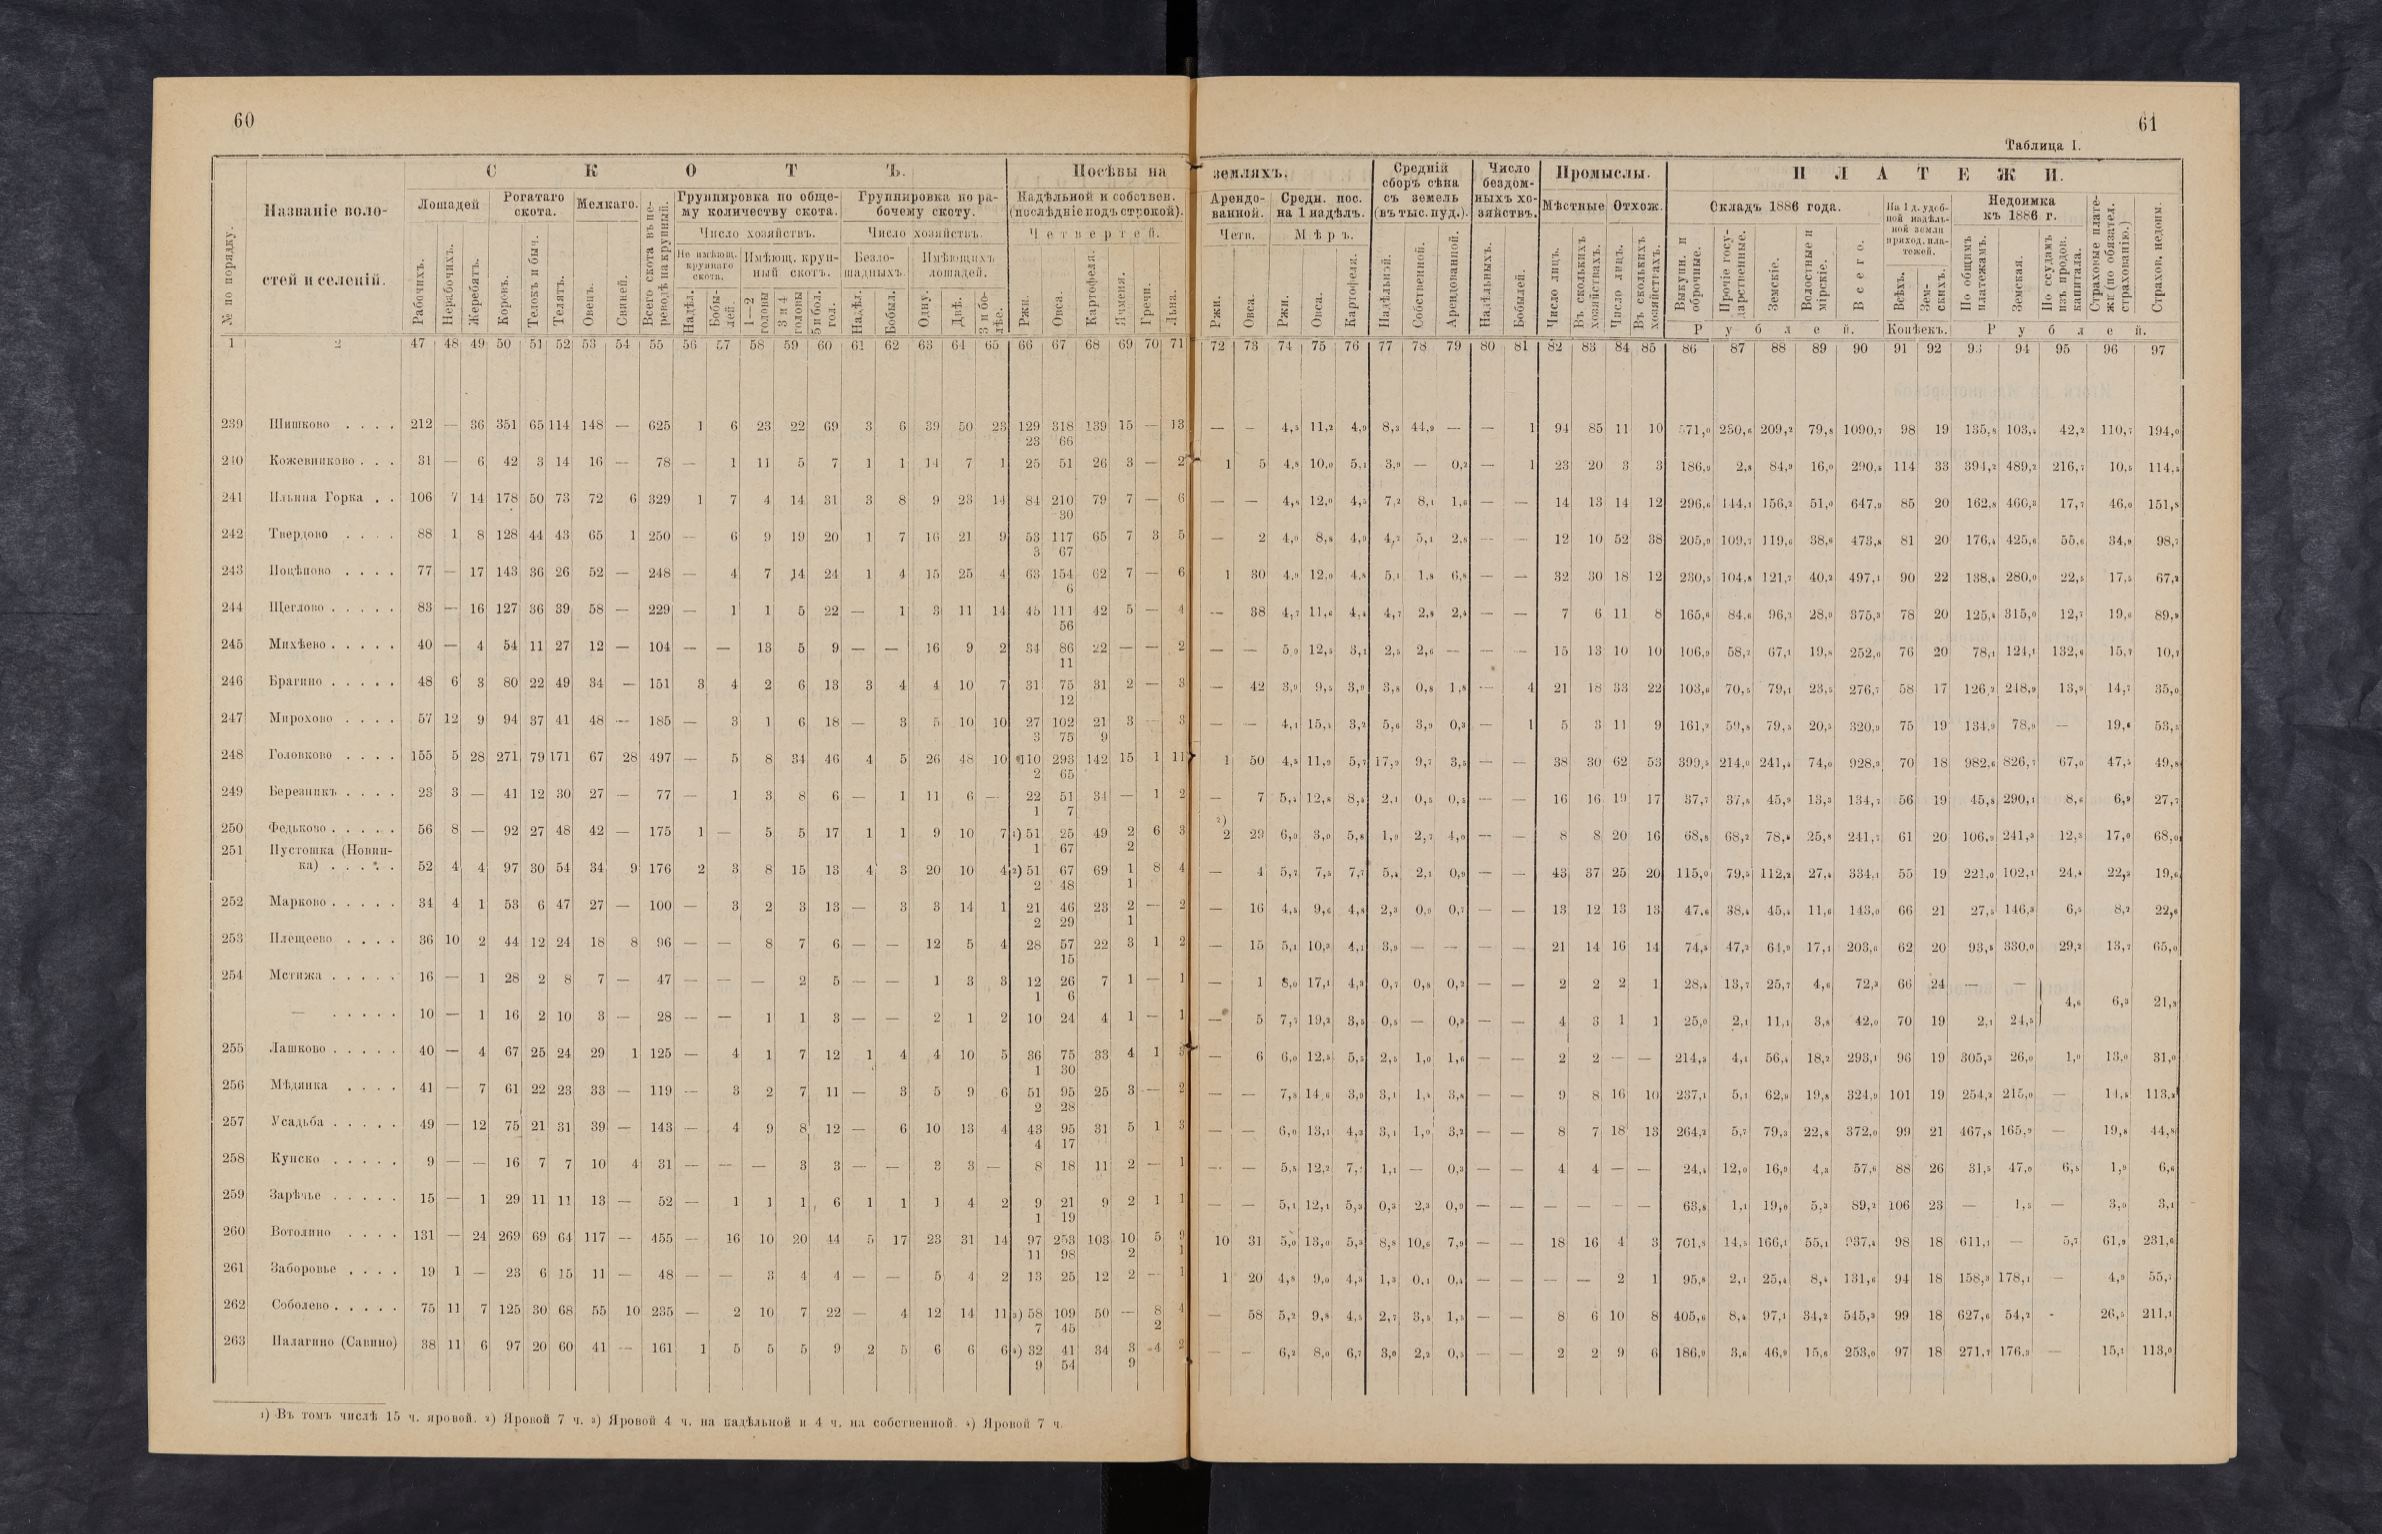 60
61
Таблица I.
С К О Т Ъ.
Посѣвы на
земляхъ.
Средній сборъ сѣна съ земель (въ тыс. пуд.).
Число бездомныхъ хозяйствъ.
Промыслы.
П Л А Т Е Ж И.
№ по порядку.
Названіе волостей и селеній.
Лошадей
Рогатаго скота.
Мелкаго.
Всего скота въ переводѣ на крупный.
Группировка по общему количеству скота.
Группировка по рабочему скоту.
Надѣльной и собствен. (послѣдніе подъ строкой).
Арендованной.
Средн. пос. на 1 надѣлъ.
Мѣстные
Отхож.
Складъ 1886 года.
На 1 д. удобной надѣльной земли приход. платежей.
Недоимка къ 1886 г.
Страховые платежи (по обязател. страхованію.)
Страхов. недоим.
Число хозяйствъ.
Число хозяйствъ.
Четвертей.
Четв.
Мѣръ.
Не имѣющ. крупнаго скота.
Имѣющ. крупный скотъ.
Безлошадныхъ.
Имѣющихъ лошадей.
Рабочихъ.
Нерабочихъ.
Жеребятъ.
Коровъ.
Телокъ и быч.
Телятъ.
Овецъ.
Свиней.
Надѣл.
Бобылей.
1—2 головы
3 и 4 головы
5 и бол. гол.
Надѣл.
Бобыл.
Одну.
Двѣ.
3 и болѣе.
Ржи.
Овса.
Картофеля.
Ячменя.
Гречи.
Льна.
Ржи.
Овса.
Ржи.
Овса.
Картофеля.
Надѣльной.
Собственной.
Арендованной.
Надѣльныхъ.
Бобылей.
Число лицъ.
Въ сколькихъ хозяйствахъ.
Число лицъ.
Въ сколькихъ хозяйствахъ.
Выкупн. и оброчные.
Прочіе государственные.
Земскіе.
Волостные и мірскіе.
Всего.
Всѣхъ.
Земскихъ.
По общимъ платежамъ.
Земская.
По ссудамъ изъ продов. капитала.
Рублей.
Копѣекъ.
Рублей.
1 2 47 48 49 50 51 52 53 54 55 56 57 58 59 60 61 62 63 64 65 66 67 68 69 70 71 72 73 74 75 76 77 78 79 80 81 82 83 84 85 86 87 88 89 90 91 92 93 94 95 96 97
239 Шишково . . . . 212 — 36 351 65 114 148 — 625 1 6 23 22 69 3 6 39 50 23 129 318 139 15 — 13 — — 4,5 11,2 4,9 8,3 44,9 — — 1 94 85 11 10 571,0 230,6 209,2 79,8 1090,7 98 19 135,8 103,4 42,2 110,7 194,0
23 66
240 Кожевниково . . . 31 — 6 42 3 14 16 — 78 — 1 11 5 7 1 1 14 7 1 25 51 26 3 — 2 1 5 4,8 10,0 5,1 3,9 — 0,2 — 1 23 20 3 3 186,9 2,8 84,9 16,0 290,5 114 33 394,2 489,2 216,7 10,5 114,5
241 Ильина Горка . . 106 7 14 178 50 73 72 6 329 1 7 4 14 31 3 8 9 23 14 84 210 79 7 — 6 — — 4,8 12,0 4,5 7,2 8,1 1,6 — — 14 13 14 12 296,6 144,1 156,2 51,0 647,9 85 20 162,8 466,3 17,7 46,0 151,8
30
242 Твердово . . . . 88 1 8 128 44 43 65 1 250 — 6 9 19 20 1 7 16 21 9 53 117 65 7 3 5 — 2 4,0 8,8 4,9 4,2 5,4 2,8 — — 12 10 52 38 205,9 109,7 119,6 38,6 473,8 81 20 176,4 425,6 55,6 34,9 98,7
3 67
243 Поцѣпово . . . . 77 — 17 143 36 26 52 — 248 — 4 7 14 24 1 4 15 25 4 63 154 62 7 — 6 1 30 4,9 12,0 4,8 5,1 1,8 6,8 — — 32 30 18 12 230,5 104,8 121,7 40,2 497,1 90 22 138,4 280,0 22,5 17,5 67,2
6
244 Щеглово . . . . . 83 — 16 127 36 39 58 — 229 — 1 1 5 22 — 1 3 11 14 45 111 42 5 — 4 — 38 4,7 11,6 4,4 4,7 2,8 2,4 — — 7 6 11 8 165,6 84,6 96,2 28,9 375,3 78 20 125,4 315,0 12,7 19,6 89,9
56
245 Михѣево . . . . . 40 — 4 54 11 27 12 — 104 — — 13 5 9 — — 16 9 2 34 86 22 — — 2 — — 5,0 12,5 3,1 2,5 2,6 — — — 15 13 10 10 106,9 58,2 67,1 19,8 252,0 76 20 78,1 124,1 132,6 15,7 10,7
11
246 Брагино . . . . . 48 6 3 80 22 49 34 — 151 3 4 2 6 13 3 4 4 10 7 31 75 31 2 — 3 — 42 3,9 9,5 3,9 3,8 0,8 1,8 — 4 21 18 33 22 103,6 70,5 79,1 23,5 276,7 58 17 126,2 248,9 13,9 14,7 35,0
12
247 Мирохово . . . . 57 12 9 94 37 41 48 — 185 — 3 1 6 18 — 3 5 10 10 27 102 21 3 — 3 — — 4,1 15,5 3,2 5,6 3,9 0,3 — 1 5 3 11 9 161,2 59,8 79,5 20,5 320,9 75 19 134,9 78,9 — 19,6 53,5
3 75 9
248 Головково . . . . 155 5 28 271 79 171 67 28 497 — 5 8 34 46 4 5 26 48 10 110 293 142 15 1 11 1 50 4,5 11,9 5,7 17,9 9,7 3,5 — — 38 30 62 53 399,5 214,0 241,4 74,0 928,9 70 18 982,6 826,7 67,0 47,5 49,8
2 65
249 Березникъ . . . . 23 3 — 41 12 30 27 — 77 — 1 3 8 6 — 1 11 6 — 22 51 34 — 1 2 — 7 5,4 12,8 8,4 2,1 0,5 0,5 — — 16 16 19 17 37,7 37,8 45,9 13,3 134,7 56 19 45,8 290,1 8,6 6,9 27,7
1 7
250 Федьково . . . . . 56 8 — 92 27 48 42 — 175 1 — 5 5 17 1 1 9 10 7 1) 51 25 49 2 6 3 2) 2 29 6,0 3,0 5,8 1,9 2,7 4,0 — — 8 8 20 16 68,8 68,2 78,9 25,8 241,7 61 20 106,9 241,3 12,3 17,0 68,0
1 67 2
251 Пустошка (Новин-
ка) . . . . . 52 4 4 97 30 54 34 9 176 2 3 8 15 13 4 3 20 10 4 2) 51 67 69 1 8 4 — 4 5,7 7,5 7,7 5,4 2,1 0,9 — — 43 37 25 20 115,0 79,5 112,2 27,4 334,1 55 19 221,0 102,1 24,4 22,3 19,6
2 48 1
252 Марково . . . . . 34 4 1 53 6 47 27 — 100 — 3 2 3 13 — 3 3 14 1 21 46 23 2 — 2 — 16 4,5 9,6 4,8 2,3 0,9 0,7 — — 13 12 13 13 47,6 38,4 45,4 11,6 143,0 66 21 27,5 146,3 6,5 8,2 22,6
2 29 1
253 Плещеево . . . . 36 10 2 44 12 24 18 8 96 — — 8 7 6 — — 12 5 4 28 57 22 3 1 2 — 15 5,1 10,3 4,1 3,9 — — — — 21 14 16 14 74,5 47,2 64,9 17,1 203,6 62 20 93,8 330,0 29,2 13,7 65,0
15
254 Мстижа . . . . . 16 — 1 28 2 8 7 — 47 — — — 2 5 — — 1 3 3 12 26 7 1 — 1 — 1 8,0 17,1 4,3 0,7 0,8 0,2 — — 2 2 2 1 28,4 13,7 25,7 4,6 72,3 66 24 — — 4,6 6,3 21,3
1 6
— . . . . . 10 — 1 16 2 10 3 — 28 — — 1 1 3 — — 2 1 2 10 24 4 1 — 1 — 5 7,7 19,2 3,5 0,5 — 0,3 — — 4 3 1 1 25,0 2,1 11,1 3,8 42,0 70 19 2,1 24,5
255 Лашково . . . . . 40 — 4 67 25 24 29 1 125 — 4 1 7 12 1 4 4 10 5 36 75 33 4 1 3 — 6 6,0 12,5 5,5 2,5 1,0 1,6 — — 2 2 — — 214,3 4,1 56,4 18,2 293,1 96 19 305,3 26,0 1,0 13,0 31,0
1 30
256 Мѣдянка . . . . 41 — 7 61 22 23 33 — 119 — 3 2 7 11 — 3 5 9 6 51 95 25 3 — 2 — — 7,8 14,6 3,9 3,1 1,4 3,8 — — 9 8 16 10 237,1 5,1 62,9 19,8 324,9 101 19 254,2 215,0 — 14,5 113,3
2 28
257 Усадьба . . . . . 49 — 12 75 21 31 39 — 143 — 4 9 8 12 — 6 10 13 4 43 95 31 5 1 3 — — 6,0 13,1 4,3 3,1 1,0 3,2 — — 8 7 18 13 264,2 5,7 79,3 22,8 372,0 99 21 467,8 165,9 — 19,8 44,8
4 17
258 Купско . . . . . 9 — — 16 7 7 10 4 31 — — — 3 3 — — 3 3 — 8 18 11 2 — 1 — — 5,5 12,2 7,2 1,1 — 0,3 — — 4 4 — — 24,4 12,0 16,9 4,3 57,6 88 26 31,5 47,0 6,5 1,9 6,6
259 Зарѣчье . . . . . 15 — 1 29 11 11 13 — 52 — 1 1 1 6 1 1 1 4 2 9 21 9 2 1 1 — — 5,1 12,1 5,3 0,3 2,3 0,9 — — — — — — 63,8 1,1 19,0 5,3 89,2 106 23 — 1,5 — 3,0 3,1
1 19
260 Вотолино . . . . 131 — 24 269 69 64 117 — 455 — 16 10 20 44 5 17 23 31 14 97 253 103 10 5 9 10 31 5,0 13,0 5,3 8,8 10,6 7,9 — — 18 16 4 3 701,8 14,5 166,1 55,1 937,4 98 18 611,1 — 5,7 61,9 231,6
11 98 2 1
261 Заборовье . . . . 19 1 — 23 6 15 11 — 48 — — 3 4 4 — — 5 4 2 13 25 12 2 — 1 1 20 4,8 9,0 4,3 1,3 0,1 0,4 — — — — 2 1 95,8 2,1 25,4 8,4 131,6 94 18 158,3 178,1 — 4,9 55,7
262 Соболево . . . . . 75 11 7 125 30 68 55 10 235 — 2 10 7 22 — 4 12 14 11 3) 58 109 50 — 8 4 — 58 5,2 9,8 4,5 2,7 3,5 1,5 — — 8 6 10 8 405,6 8,4 97,1 34,2 545,3 99 18 627,6 54,2 - 26,5 211,1
7 45 2
263 Палагино (Савино) 38 11 6 97 20 60 41 — 161 1 5 5 5 9 2 5 6 6 6 4) 32 41 34 3 4 2 — — 6,2 8,0 6,7 3,0 2,2 0,5 — — 2 2 9 6 186,9 3,6 46,9 15,6 253,0 97 18 271,7 176,3 — 15,1 113,0
9 54 9
1) Въ томъ числѣ 15 ч. яровой. 2) Яровой 7 ч. 3) Яровой 4 ч. на надѣльной и 4 ч. на собственной. 4) Яровой 7 ч.